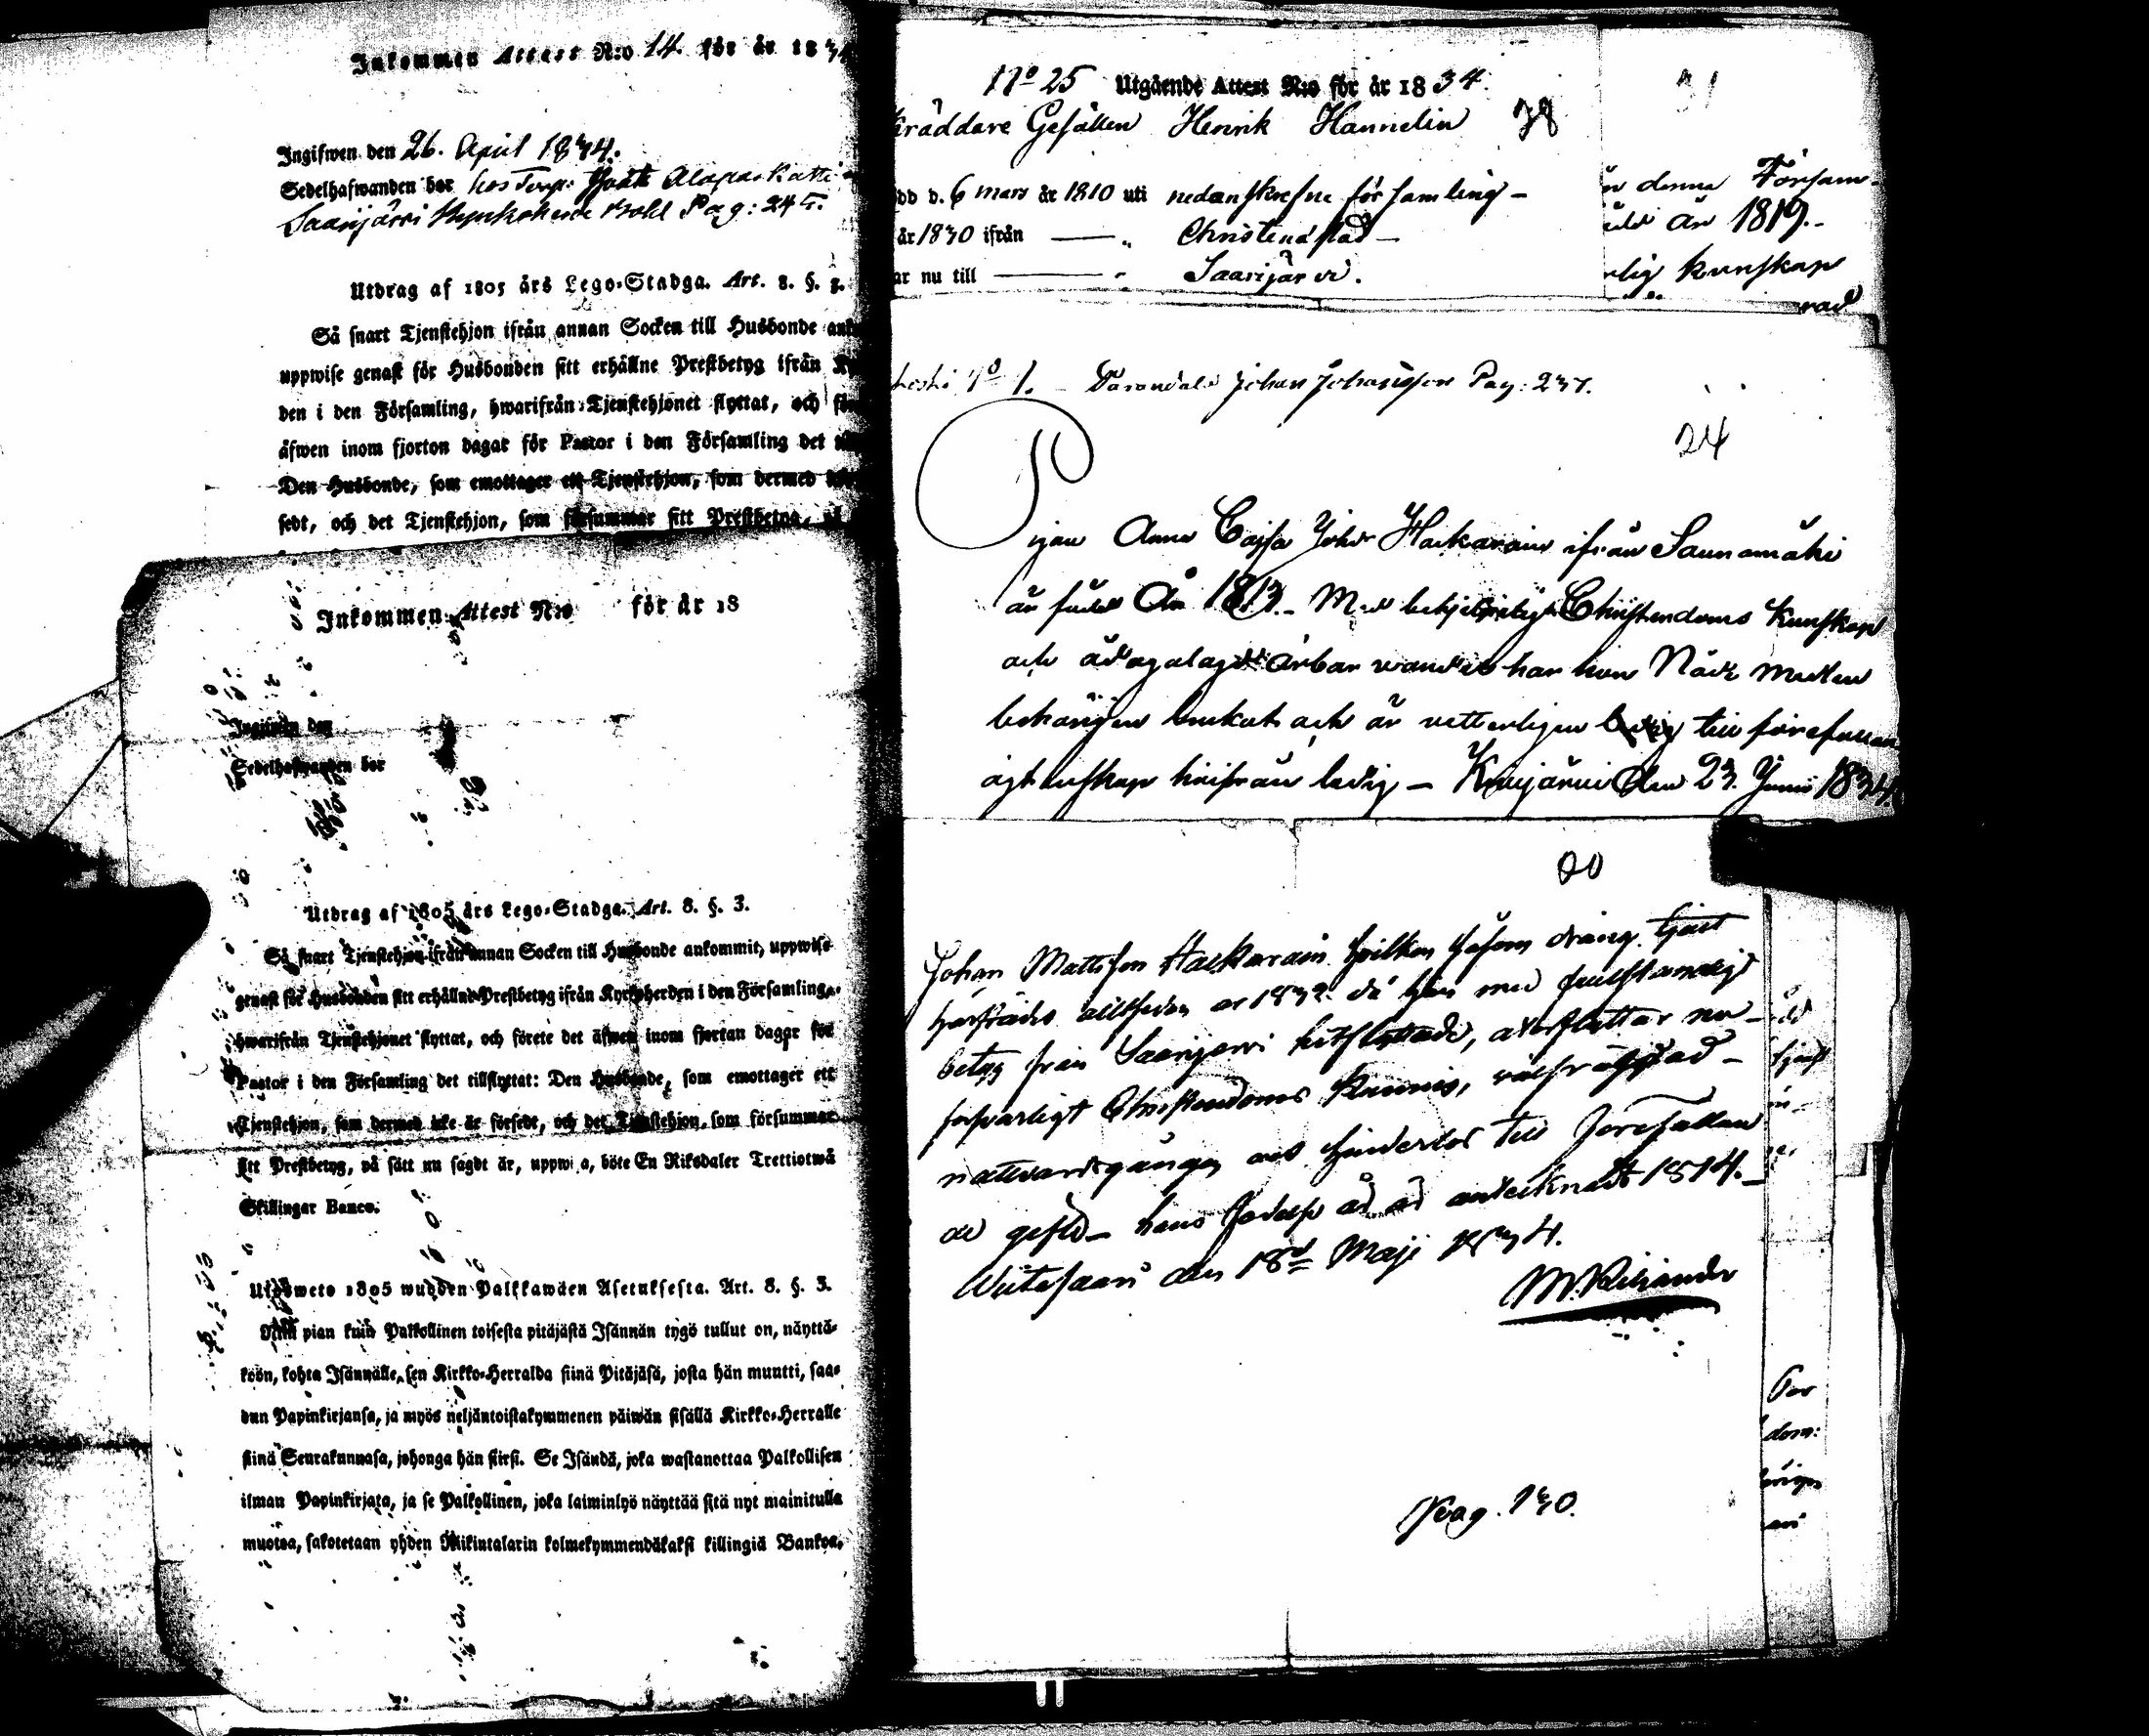 Inkommen Attest N:o 14. för år 1834
Ingifwen den 26. April 1834.
Sedelhafwanden bor hos Torp:
Saarijärvi Kyrkoherde Bohl Pag: 245.
Utdrag af 1805 års Lego-Stadga. Art. 8. §. 3.
Så snart Tjenstehjon ifrån annan Socken till Husbonde ank
uppwise genast för Husbonden sitt erhållne Prestbetyg ifrån Ky
den i den Församling, hwarifrån Tjenstehjonet flyttat, och för
äfwen inom fjorton dagar för Pastor i den Församling det
Den Husbonde, som emottager ett Tjenstehjon, som dermed
sedt, och det Tjenstehjon, som försummar sitt Prestbetyg, på
Inkommen Attest N:o för år 18
Ingifwen den
Sedelhafwanden bor
Utdrag af 1805 års Lego-Stadga. Art. 8. §. 3.
Så snart Tjenstehjon ifrån annan Socken till Husbonde ankommit, uppwise
genast för Husbonden sitt erhållne Prestbetyg ifrån Kyrkoherden i den Församling,
hwarifrån Tjenstehjonet flyttat, och förete det äfwen inom fjorton dagar för
Pastor i den Församling det tillflyttat: Den Husbonde, som emottager ett
Tjenstehjon, som dermed icke är försedt, och det Tjenstehjon, som försummar
sitt Prestbetyg, på sätt nu sagdt är, uppwi a, böte En Riksdaler Trettiotwå
Skillingar Banco.
Ulosweto 1805 wuoden Palkkawäen Asetuksesta. Art. 8. §. 3.
Niin pian kuin Palkollinen toisesta pitäjästä Isännän tygö tullut on, näyttä-
köön, kohta Isännälle, sen Kirkko-Herralda siinä Pitäjäsä, josta hän muutti, saa-
dun Papinkirjansa, ja myös neljäntoistakymmenen päiwän sisällä Kirkko-Herralle
siinä Seurakunnasa, johonga hän siirsi. Se Isändä, joka wastanottaa Palkollisen
ilman Papinkirjata, ja se Palkollinen, joka laiminlyö näyttää sitä nyt mainitulla
muotoa, sakotetaan yhden Riikintalarin kolmekymmendäkaksi killingiä Bankoa.
N:o 25 Utgående Attest N:o för år 1834.
kräddare Gesällen Henrik Hannelin 38
dd d. 6 mars år 1810 uti nedanskrefne församling –
år 1830 ifrån — „ Christinæstad –
ar nu till — „ Saarijärvi.
31
denna Församl-
år 1819. –
rlig kunskap
rad
N:o 1. Johan Johansson Pag: 237.
24
Pigan Anna Cajsa Johdr Hackarain ifrån Saunamäki
är född År 1813. – Med behjelpligh Christendoms Kunskap
och ådagalagd ärbar vandel har hon Nåde medlen
behörigen brukat och är vetterligen ledig till förefallan
ägtenskap härifrån ledig – Kivijärvi den 23. Junii 1834.
20
Johan Mattsson Hackarain hvilken såsom dräng tjent
härstädes alltsedan år 1832 då han med fullständigt
betyg från Saarijervi hitflyttade, återflyttar nu –
försvarligt Christendoms kunnig, välfräjdad –
nattvardsgången och hinderlös till förefallan
de gifte – hans födelse år är antecknadt 1814. –
Wiitasaari den 18de Maji 1834.
Pag. 130.